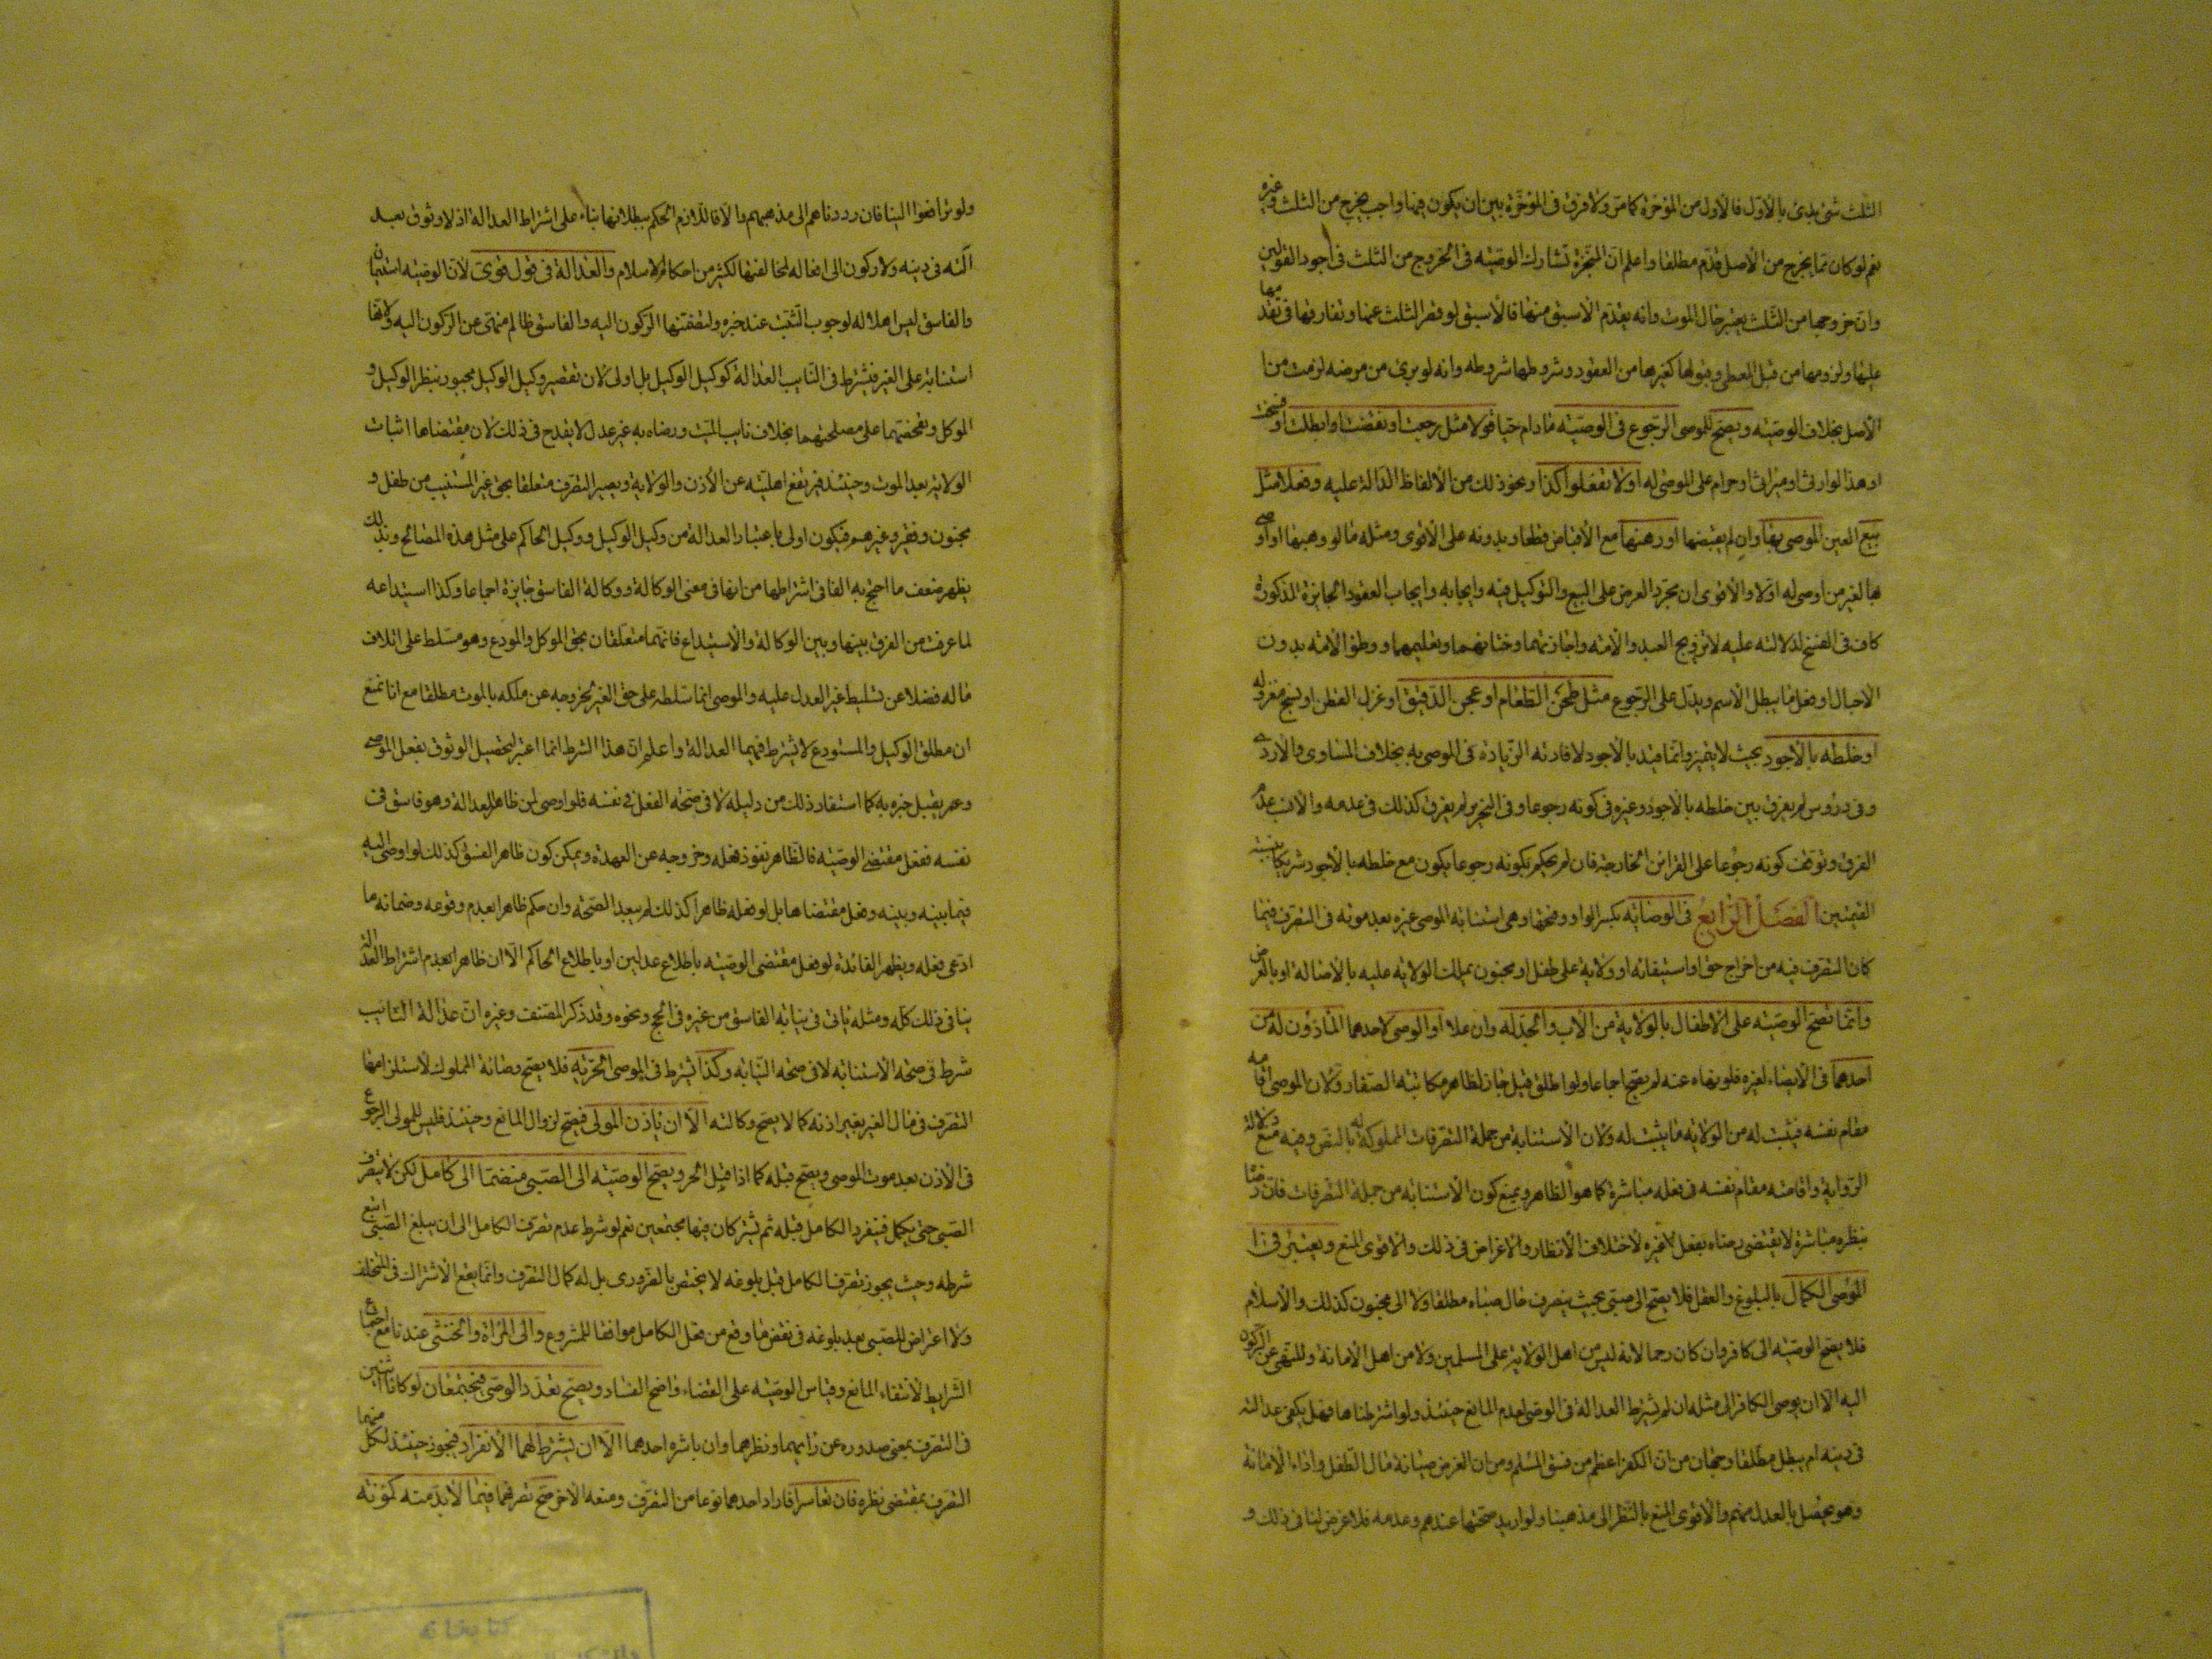 الثلث شئ بدئ بالأول فالأول من المؤخرة كما مر ولا فرق فى المؤخرة بين ان يكون فيها واجب يخرج من الثلث وغيره
نعم لو كان مما يخرج من الأصل قدم مطلقا واعلم ان المنجزة تشارك الوصية فى الخروج من الثلث فى اجود القولين
وان خروجها من الثلث يعتبر حال الموت وانه يقدم الاسبق منها فالأسبق لو قصر الثلث عنها وتفارقها فى تقدمها
عليها ولزومها من قبل المعطى وقبولها كغيرها من العقود وشروطها شروطه وانه لو برئ من مرضه لزمت من
الأصل بخلاف الوصية ويصح للموصى الرجوع فى الوصية ما دام حيا قولا مثل رجعت او نقضت او ابطلت او فسخت
او هذا لوارثى او ميراثى او حرام على الموصى له او لا تفعلوا كذا ونحو ذلك من الألفاظ الدالة عليه وفعلا مثل
بيع العين الموصى بها وان لم يقبضها او رهنها مع الأقباض قطعا وبدونه على الأقوى ومثله ما لو وهبها او اوصى
بها لغير من اوصى له اولا والأقوى ان مجرد العرض على البيع والتوكيل فيه وايجابه وايجاب العقود الجايزة المذكورة
كاف فى الفسخ لدلالته عليه لا تزويج العبد والأمة واجازتهما وختانهما وتعليمهما ووطؤ الأمة بدون
الاحبال او فعل ما يبطل الاسم ويدل على الرجوع مثل طحن الطعام او عجن الدقيق او غزل القطن او نسج مغزوله
او خلطه بالأجود بحيث لا يتميز وانما قيد بالأجود لافادته الزيادة فى الموصى به بخلاف المساوى والأردى
وفى دروس لم يفرق بين خلطه بالأجود وغيره فى كونه رجوعا وفى التحرير لم يفرق كذلك فى عدمه والأنسب عدم
الفرق وتوقف كونه رجوعا على القرائن الخارجة فان لم يحكم بكونه رجوعا يكون مع خلطه بالأجود شريكا بنسبة
القيمتين الفصل الرابع فى الوصاية بكسر الواو وفتحها وهى استنابة الموصى غيره بعد موته فى التصرف فيما
كان له التصرف فيه من اخراج حق او استيفائه او ولاية على طفل او مجنون يملك الولاية عليه بالأصالة او بالعرض
وانما تصح الوصية على الأطفال بالولاية من الأب والجد له وان علا او الوصى لاحدهما المأذون له من
احدهما فى الأيصاء لغيره فلو نهاه عنه لم يصح اجماعا ولو اطلق قيل جاز لظاهر مكاتبة الصفار ولان الموصى اقامه
مقام نفسه فيثبت له من الولاية ما يثبت له ولان الأستنابة من جملة التصرفات المملوكة له بالنص وفيه منع دلالة
الرواية واقامته مقام نفسه فى فعله مباشرة كما هو الظاهر ويمنع كون الأستنابة من جملة التصرفات فان رضاه
بنظره مباشرة لا يقتضى رضاه بفعل غيره لاختلاف الأنظار والأغراض فى ذلك والأقوى المنع ويعتبر فى
الموصى الكمال بالبلوغ والعقل فلا يصح الى صبى بحيث يتصرف حال صباه مطلقا ولا الى مجنون كذلك والأسلام
فلا يصح الوصية الى كافر وان كان رحما لانه ليس من اهل الولاية على المسلمين ولا من اهل الأمانة وللنهى عن الركون
اليه الا ان يوصى الكافر الى مثله ان لم نشترط العدالة فى الوصى لعدم المانع حينئذ ولو اشترطناها فهل يكفى عدالته
فى دينه ام يبطل مطلقا وجهان من ان الكفر اعظم من فسق المسلم ومن ان الغرض صيانة مال الطفل واداء الأمانة
وهو يحصل بالعدل منهم والأقوى المنع بالنظر الى مذهبنا ولو اريد صحتها عندهم وعدمه فلا غرض لنا فى ذلك و
ولو ترافعوا الينا فان رددناهم الى مذهبهم والا فاللازم الحكم ببطلانها بناء على اشتراط العدالة اذ لا وثوق بعد
الته فى دينه ولا ركون الى افعاله لمخالفتها لكثير من احكام الاسلام والعدالة فى قول قوى لأن الوصية استيمان
والفاسق ليس اهلا له لوجوب التثبت عند خبره ولتضمنها الركون اليه والفاسق ظالم منهى عن الركون اليه ولانها
استنابة على الغير فيشترط فى النايب العدالة كوكيل الوكيل بل اولى لان تقصير وكيل الوكيل مجبور بنظر الوكيل و
الموكل وتفحصهما على مصلحتهما بخلاف نايب الميت ورضاه به غير عدل لا يقدح فى ذلك لان مقتضاها اثبات
الولاية بعد الموت وحينئذ فيرتفع اهليته عن الأذن والولاية ويصير التصرف متعلقا بحق غير المستنيب من طفل و
مجنون وفقير وغيرهم فيكون اولى باعتبار العدالة من وكيل الوكيل ووكيل الحاكم على مثل هذه المصالح وبذلك
يظهر ضعف ما احتج به الفافى اشتراطها من انها فى معنى الوكالة ووكالة الفاسق جايزة اجماعا وكذا استيداعه
لما عرفت من الفرق بينها وبين الوكالة والاستيداع فانهما متعلقان بحق الموكل والمودع وهو مسلط على اتلاف
ماله فضلا عن تسليط غير العدل عليه والموصى انما سلطه على حق الغير لخروجه عن ملكه بالموت مطلقا مع انا نمنع
ان مطلق الوكيل والمستودع لا يشترط فيهما العدالة واعلم ان هذا الشرط انما اعتبر ليحصل الوثوق بفعل الموصى
وعم يقبل خبره به كما استفاد ذلك من دليله لا فى صحة الفعل فى نفسه فلو اوصى لمن ظاهره العدالة وهو فاسق فى
نفسه ففعل مقتضى الوصية فالظاهر نفوذ فعله وخروجه عن العهدة ويمكن كون ظاهر الفسق كذلك لو اوصى اليه
فيما بينه وبينه وفعل مقتضاها بل لو فعله ظاهرا كذلك لم يبعد الصحة وان حكم ظاهرا بعدم وقوعه وضمانه ما
ادعى فعله ويظهر الفائدة لو فعل مقتضى الوصية باطلاع عدلين او باطلاع الحاكم الا ان ظاهر ابعدم اشتراط العدالة
ينافى ذلك كله ومثله يأتى فى نيابة الفاسق من غيره فى الحج ونحوه وقد ذكر المصنف وغيره ان عدالة النايب
شرط فى صحة الاستنابة لا فى صحة النيابة وكذا يشترط فى الموصى الحرية فلا يصح وصاية المملوك لاستلزامها
التصرف فى مال الغير بغير اذنه كما لا يصح وكالته الا ان يأذن المولى فيصح لزوال المانع وحينئذ فليس للمولى الرجوع
فى الأذن بعد موت الموصى ويصح قبله كما اذا قبل الحر ويصح الوصية الى الصبى منضما الى كامل لكن لا يتصرف
الصبى حتى يكمل فينفرد الكامل قبله ثم يشتركان فيها مجتمعين نعم لو شرط عدم تصرف الكامل الى ان يبلغ الصبى اتبع
شرطه وحيث يجوز تصرف الكامل قبل بلوغه لا يختص بالضرورى بل له كمال التصرف وانما يقع الأشتراك فى المتخلف
ولا اعتراض للصبى بعد بلوغه فى نقض ما وقع من فعل الكامل موافقا للمشروع والى المرأة والخنثى عندنا مع اجتماع
الشرايط لأنتفاء المانع وقياس الوصية على القضاء واضح الفساد ويصح تعدد الوصى فيجتمعان لو كانا اثنين
فى التصرف بمعنى صدوره عن رأيهما ونظرهما وان باشره احدهما الا ان يشترط لهما الأنفراد فيجوز حينئذ لكل منهما
التصرف بمقتضى نظره فان تعاسرا فاراد احدهما نوعا من التصرف ومنعه الأخر صح تصرفهما فيما لا بد منه كمؤنة
كتابخانه